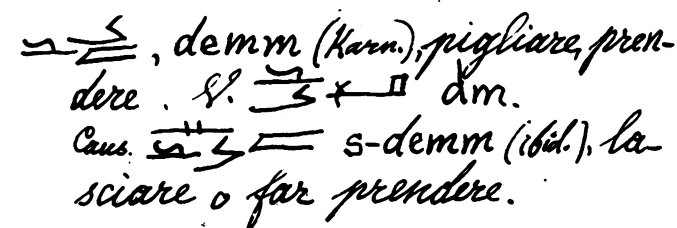 , demm (Karn.), pigliare, pren-
dere. V. dm.
Caus. s-demm (ibid.), la-
sciare o far prendere.